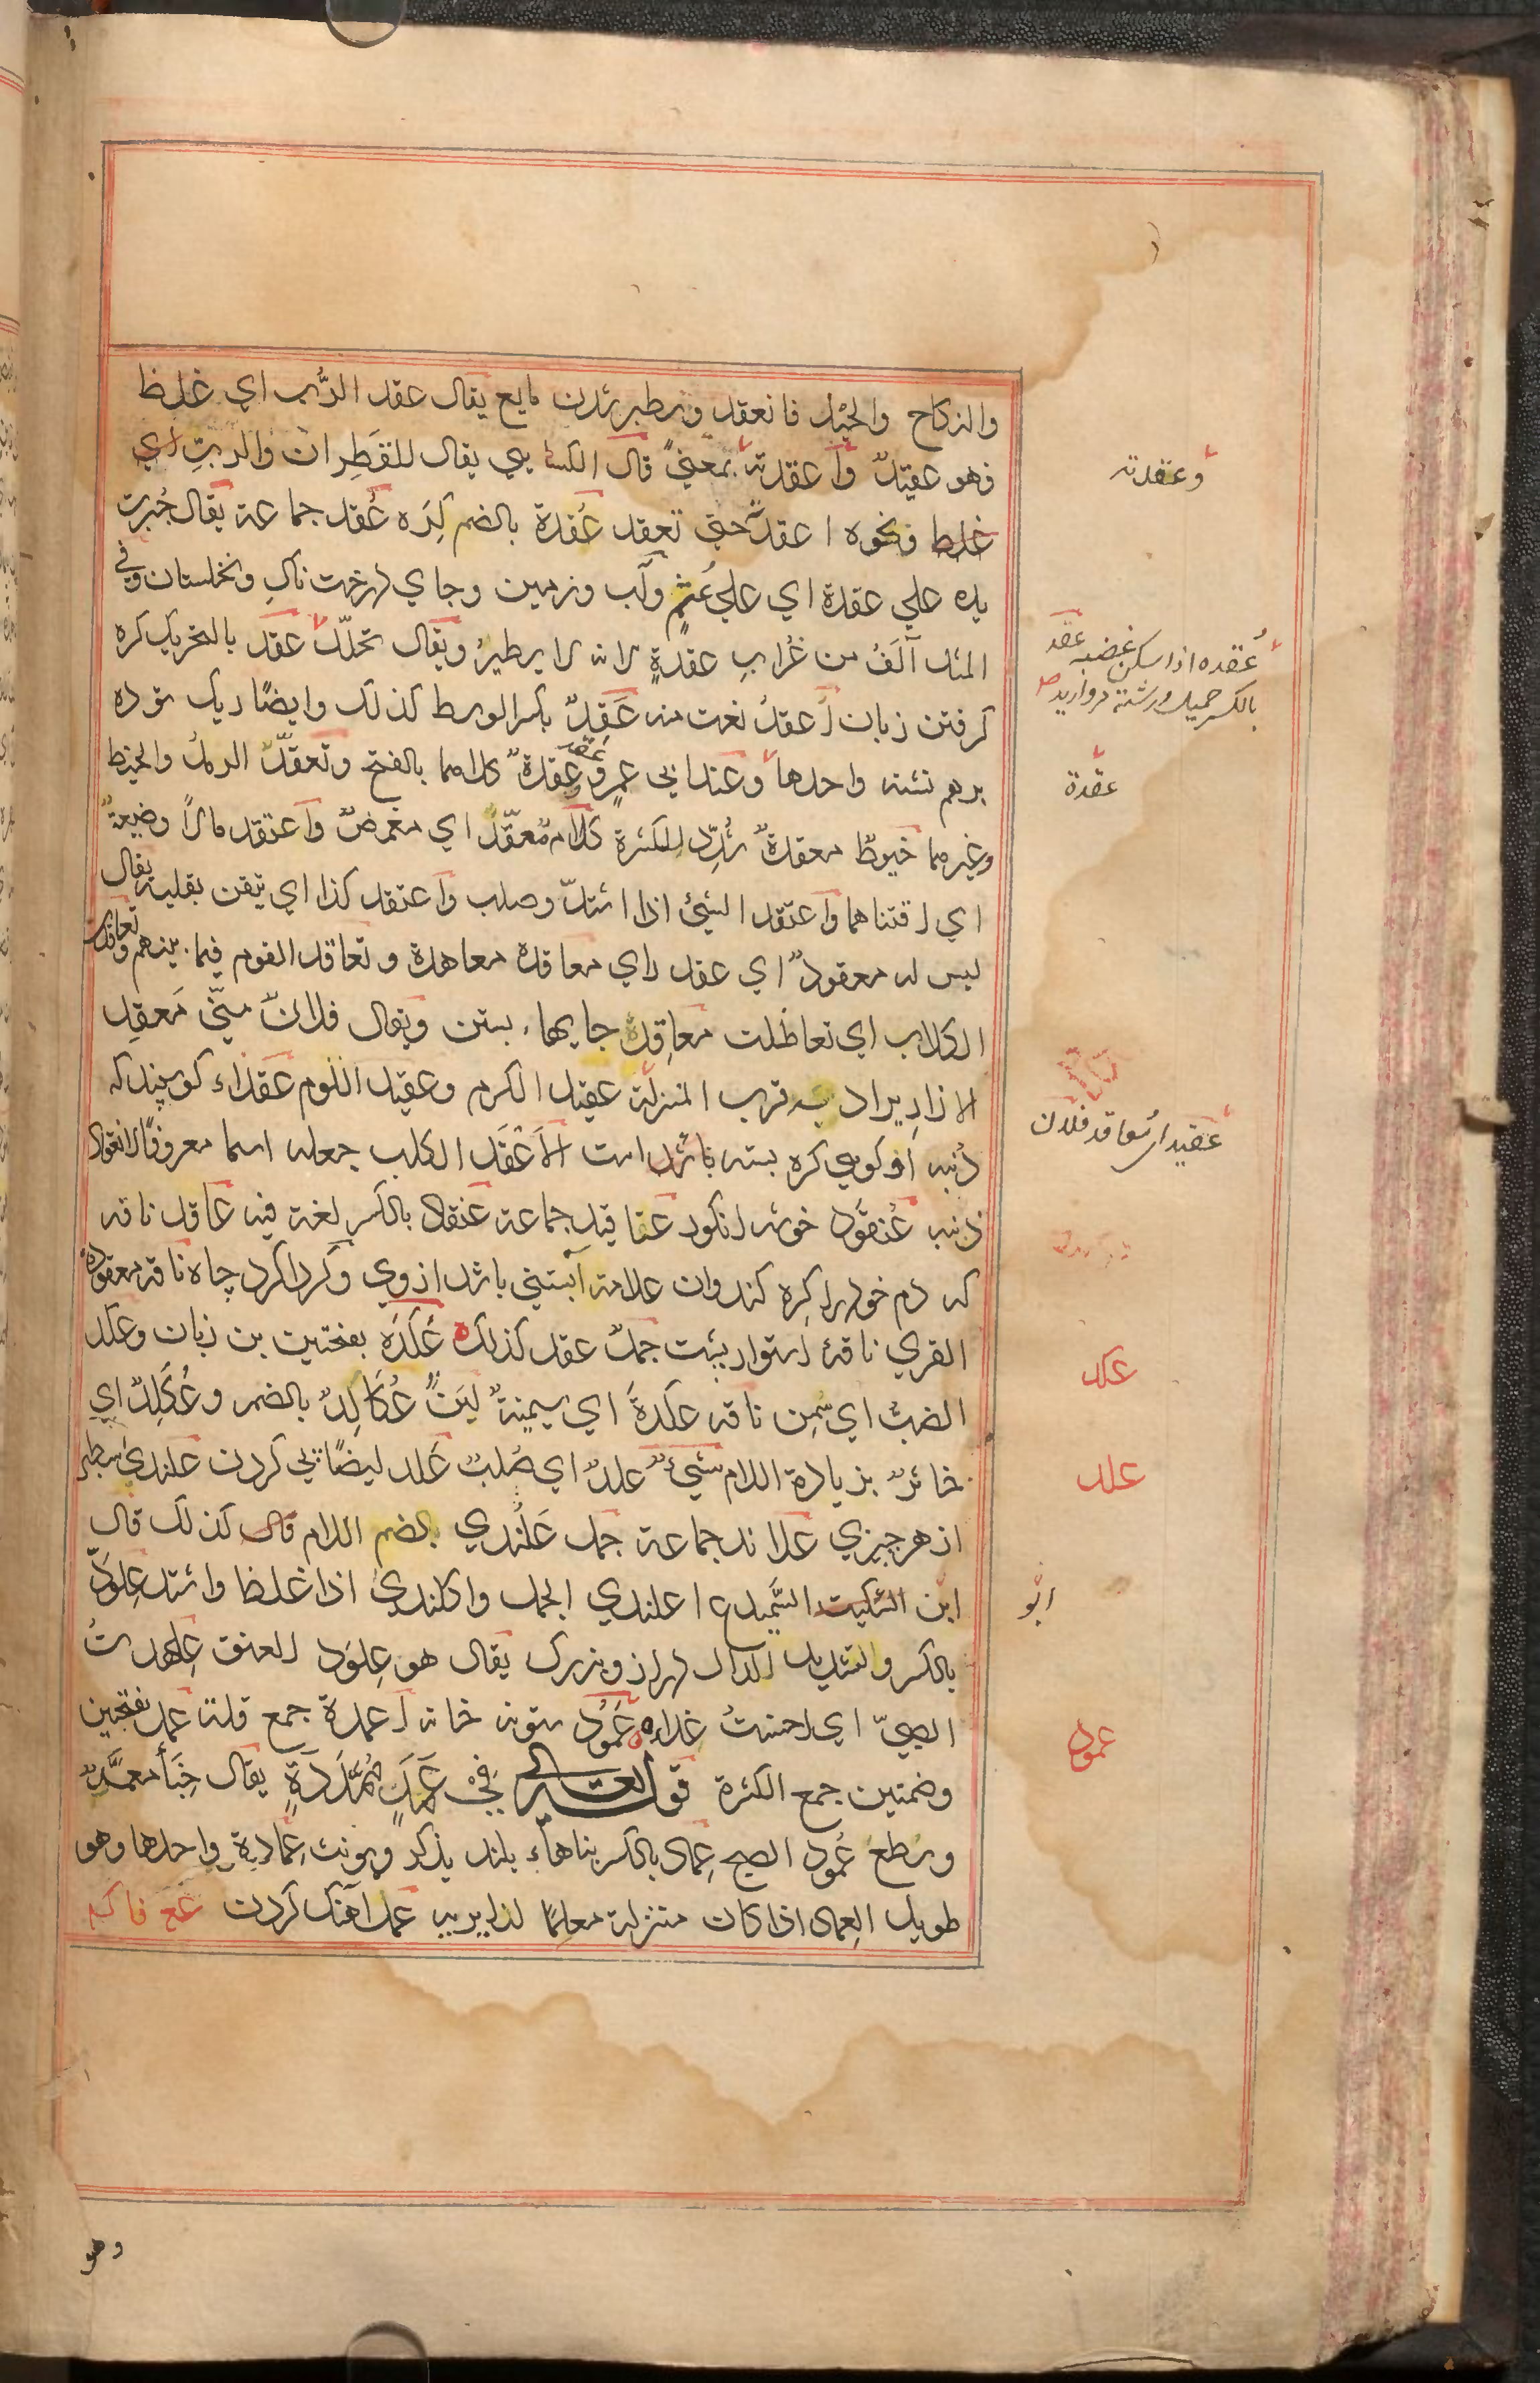 والنكاح والحبل فانعقد وسطبر شدن مايع يقال عقد الرُّب اي غلظ
فهو عقيدٌ وأعقدته بمعنىً قال الكسايي يقال للقَطِران والربِّ اي
غلظ ونحوه اعقدته حتى تعقد عُقدة بالضم كِرَه عُقد جماعة يقال جُبرت
يده علي عقدة اي علي عُثمٍ وآب وزمين وجاي درخت ناك ونخلستان وفي
المثل آلَفُ من غُرابِ عقدةٍ لانه لا يطيرُ ويقال تحلّلت عقد بالتحريك كره
كرفتن زبان أعقدُ نعت منه عَقِدٌ بكسر الوسط كذلك وايضًا ريك توده
برهم نشته واحدها وعند ابي عمرٍو عقدةٌ كلاهما بالفتح وتعقّد الرملُ والخيط
وغيرهما خيوطٌ معقدةٌ شُدِّد للكثرة كلامٌ معقّدٌ اي مغمضٌ واعتقد مالاً وضيعةً
اي اقتناهما واعتقد الشئ اذا اشتدّ وصلب واعتقد كذا اي تيقن بقلبه يقال
ليس له معقودٌ اي عقد راي معاقدة معاهدة وتعاقد القوم فيما بينهم وتعاقدت
الكلاب اي تعاظلت معاقِدُ جايها بستن ويقال فلانٌ منّي مَعقِد
الازارِ يراد به قرب المنزلة عقيد الكرم وعقيد اللوم عقداء كوسپند كه
دُنبه او كويي كره بسته باشد است الأعْقَد الكلب جعله اسما معروفًا لانعقاد
ذنبه عُنقُود خوشه انكور عناقيد جماعة عنقاد بالكسر لغة فيه عاقد ناقه
كه دم خود را كِره كند وان علامة آبستني باشد ازوي وكرداكرد چاه ناقه معقودة
القري ناقهٔ استوار پشت جملٌ عقد كذلك عَكَدَه بفتحتين بن زبان وعكد
الضبُّ اي سَمِن ناقه عكدةً اي سمينةٌ لبنٌ عُكالِدٌ بالضم وعُكَلِدٌ اي
خاثرٌ بزيادة اللام شيءٌ علدٌ اي صُلبٌ علد ايضًا پي كردن علندي سطبر
از هر چيزي علاند جماعة جمل عَلُندي بالضم اللام قال كذلك قال
ابن السكيت السَّميدع اعلندي الجمل واكلندي اذا غلظ واشتد عِلوَدّ
بالكسر والتشديد الدال دراز وبزرك يقال هو عِلوَد العنق عَلهدتُ
الصبيّ اي احسنتُ غذاءه عَمُود ستونه خانه أعمدة جمع قلة عمد بفتحتين
وضمتين جمع الكثرة قوله تعالى فِي عَمَدٍ مُمَدَّدَةٍ يقال خِبَأ معمَّدٌ
وسطع عمُود الصبح عِماد بالكسر بناهاء بلند يذكر ويونث عِمادة واحدها وهو
طويل العماد اذا كان منزله معلِمًا لزايريه عمد آهنك كردن
وعقدته
عُقده اذا سكن غضبه عقد
بالكسر حميل ورشته مرواريد
عقدة
عقيدا سُعاقد فلان
عكد
علد
ابو
عمود
وهو